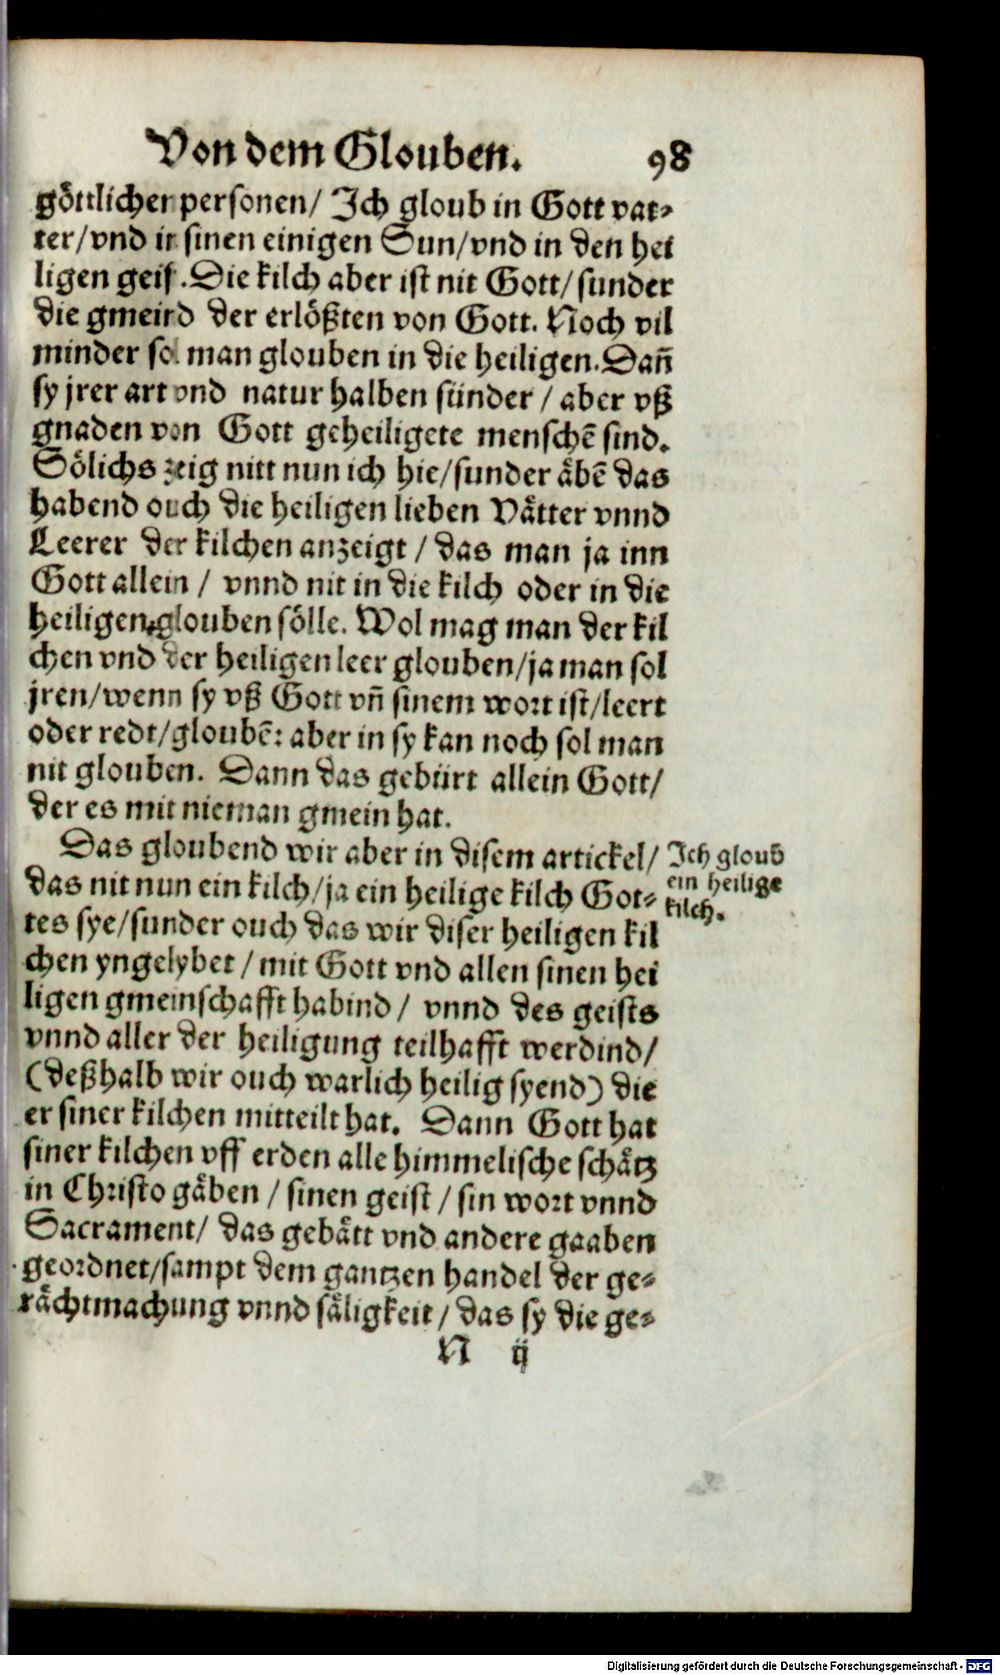 Von dem Glouben. 98
göttlicher personen/ Ich gloub in Gott vat⸗
ter/vnd in sinen einigen Sun/vnd in den hei
ligen geist. Die kilch aber ist nit Gott/ sunder
die gmeind der erlößten von Gott. Noch vil
minder sol man glouben in die heiligen. Dañ
sy jrer art vnd natur halben sünder / aber vß
gnaden von Gott geheiligete menschē sind.
Sölichs zeig nitt nun ich hie/sunder åbē das
habend ouch die heiligen lieben Våtter vnnd
Leerer der kilchen anzeigt / das man ja inn
Gott allein / vnnd nit in die kilch oder in die
heiligen glouben sölle. Wol mag man der kil
chen vnd der heiligen leer glouben/ja man sol
jren/wenn sy vß Gott vñ sinem wort ist/leert
oder redt/gloubē: aber in sy kan noch sol man
nit glouben. Dann das gebürt allein Gott/
der es mit nieman gmein hat.
Das gloubend wir aber in disem artickel/
das nit nun ein kilch/ja ein heilige kilch Got⸗
tes sye/sunder ouch das wir diser heiligen kil
chen yngelybet / mit Gott vnd allen sinen hei
ligen gmeinschafft habind / vnnd des geists
vnnd aller der heiligung teilhafft werdind/
(deßhalb wir ouch warlich heilig syend) die
er siner kilchen mitteilt hat. Dann Gott hat
siner kilchen vff erden alle himmelische schåtz
in Christo gåben / sinen geist / sin wort vnnd
Sacrament/ das gebått vnd andere gaaben
geordnet/sampt dem gantzen handel der ge⸗
råchtmachung vnnd såligkeit / das sy die ge⸗
N ij
Ich gloub
ein heilige
kilch.
Digitalisierung gefördert durch die Deutsche Forschungsgemeinschaft - DFG